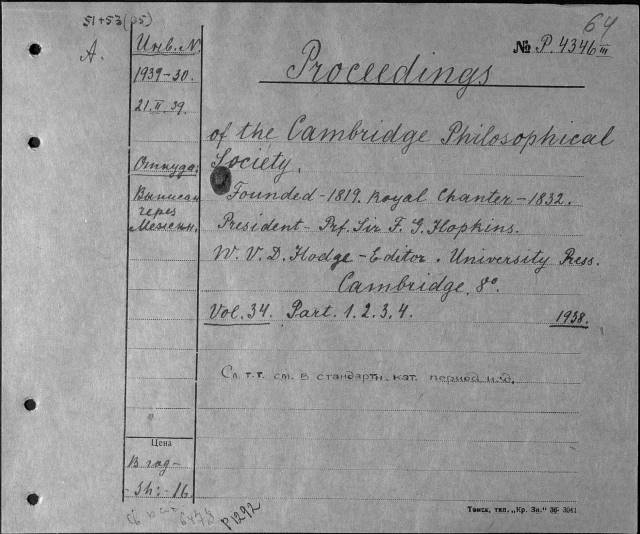 51+53 (05)
64
A.
Инв. N.
1939-30.
21.II.39.
№ P. 4346 III
Proceedings
of the Cambridge Philosophical
Society.
Откуда:
Выписан
через
Межкн.
Founded - 1819. Royal Charter - 1832.
President - Prf. Sir F. G. Hopkins.
W. V. D. Hodge - Editor. University Press.
Cambridge. 8°.
Vol. 34. Part. 1. 2. 3. 4. 1938.
Сл. т.т. см. в стандартн. кат. период. изд.
Цена
В год -
- Sh: - 16.
P1292
Томск, тип. „Кр. Зн." 36 3041